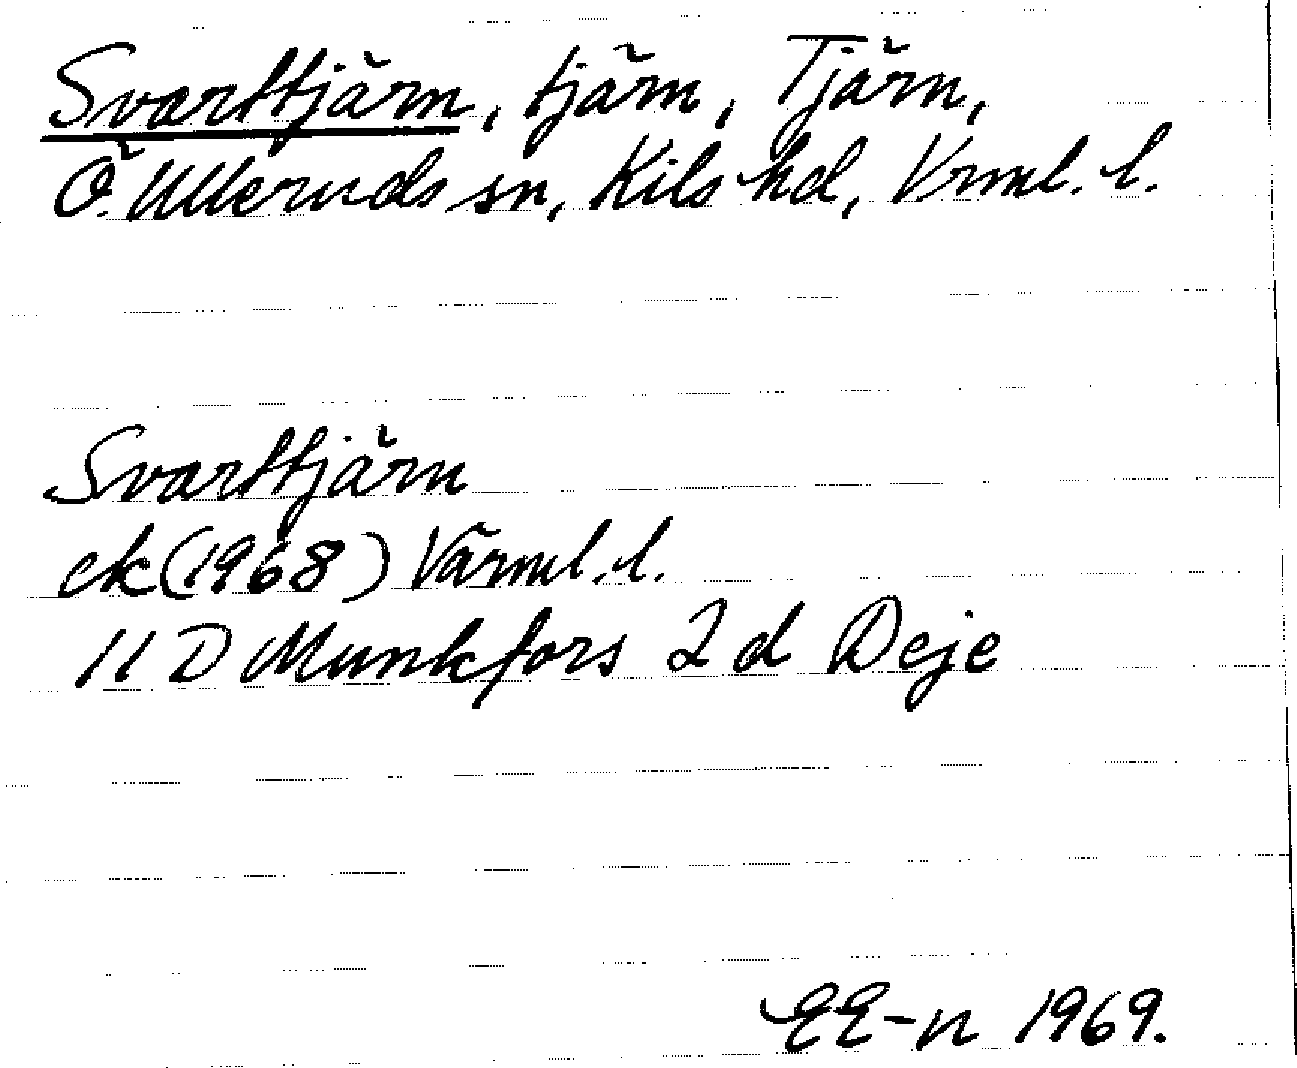 Svarttjärn, tjärn, Tjärn,
Ö. Ulleruds sn, Kils hd, Vrml. l.
Svarttjärn
ek (1968) Värml. l.
11 D Munkfors 2 d Deje
EE-n 1969.